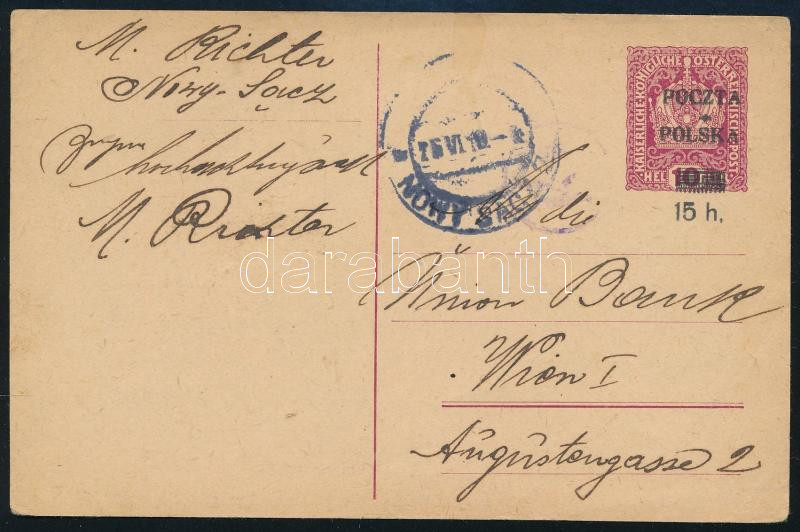 M. Richter
Nowy-Sącz
hochachtungsvoll
M. Richter
NOWY SĄCZ
KAISERLICHE KÖNIGLICHE ÖSTERREICHISCHE POST
POCZTA
POLSKA
HEL 10
15 h.
An die
Union Bank
Wien I
Augustengasse 2
darabanth